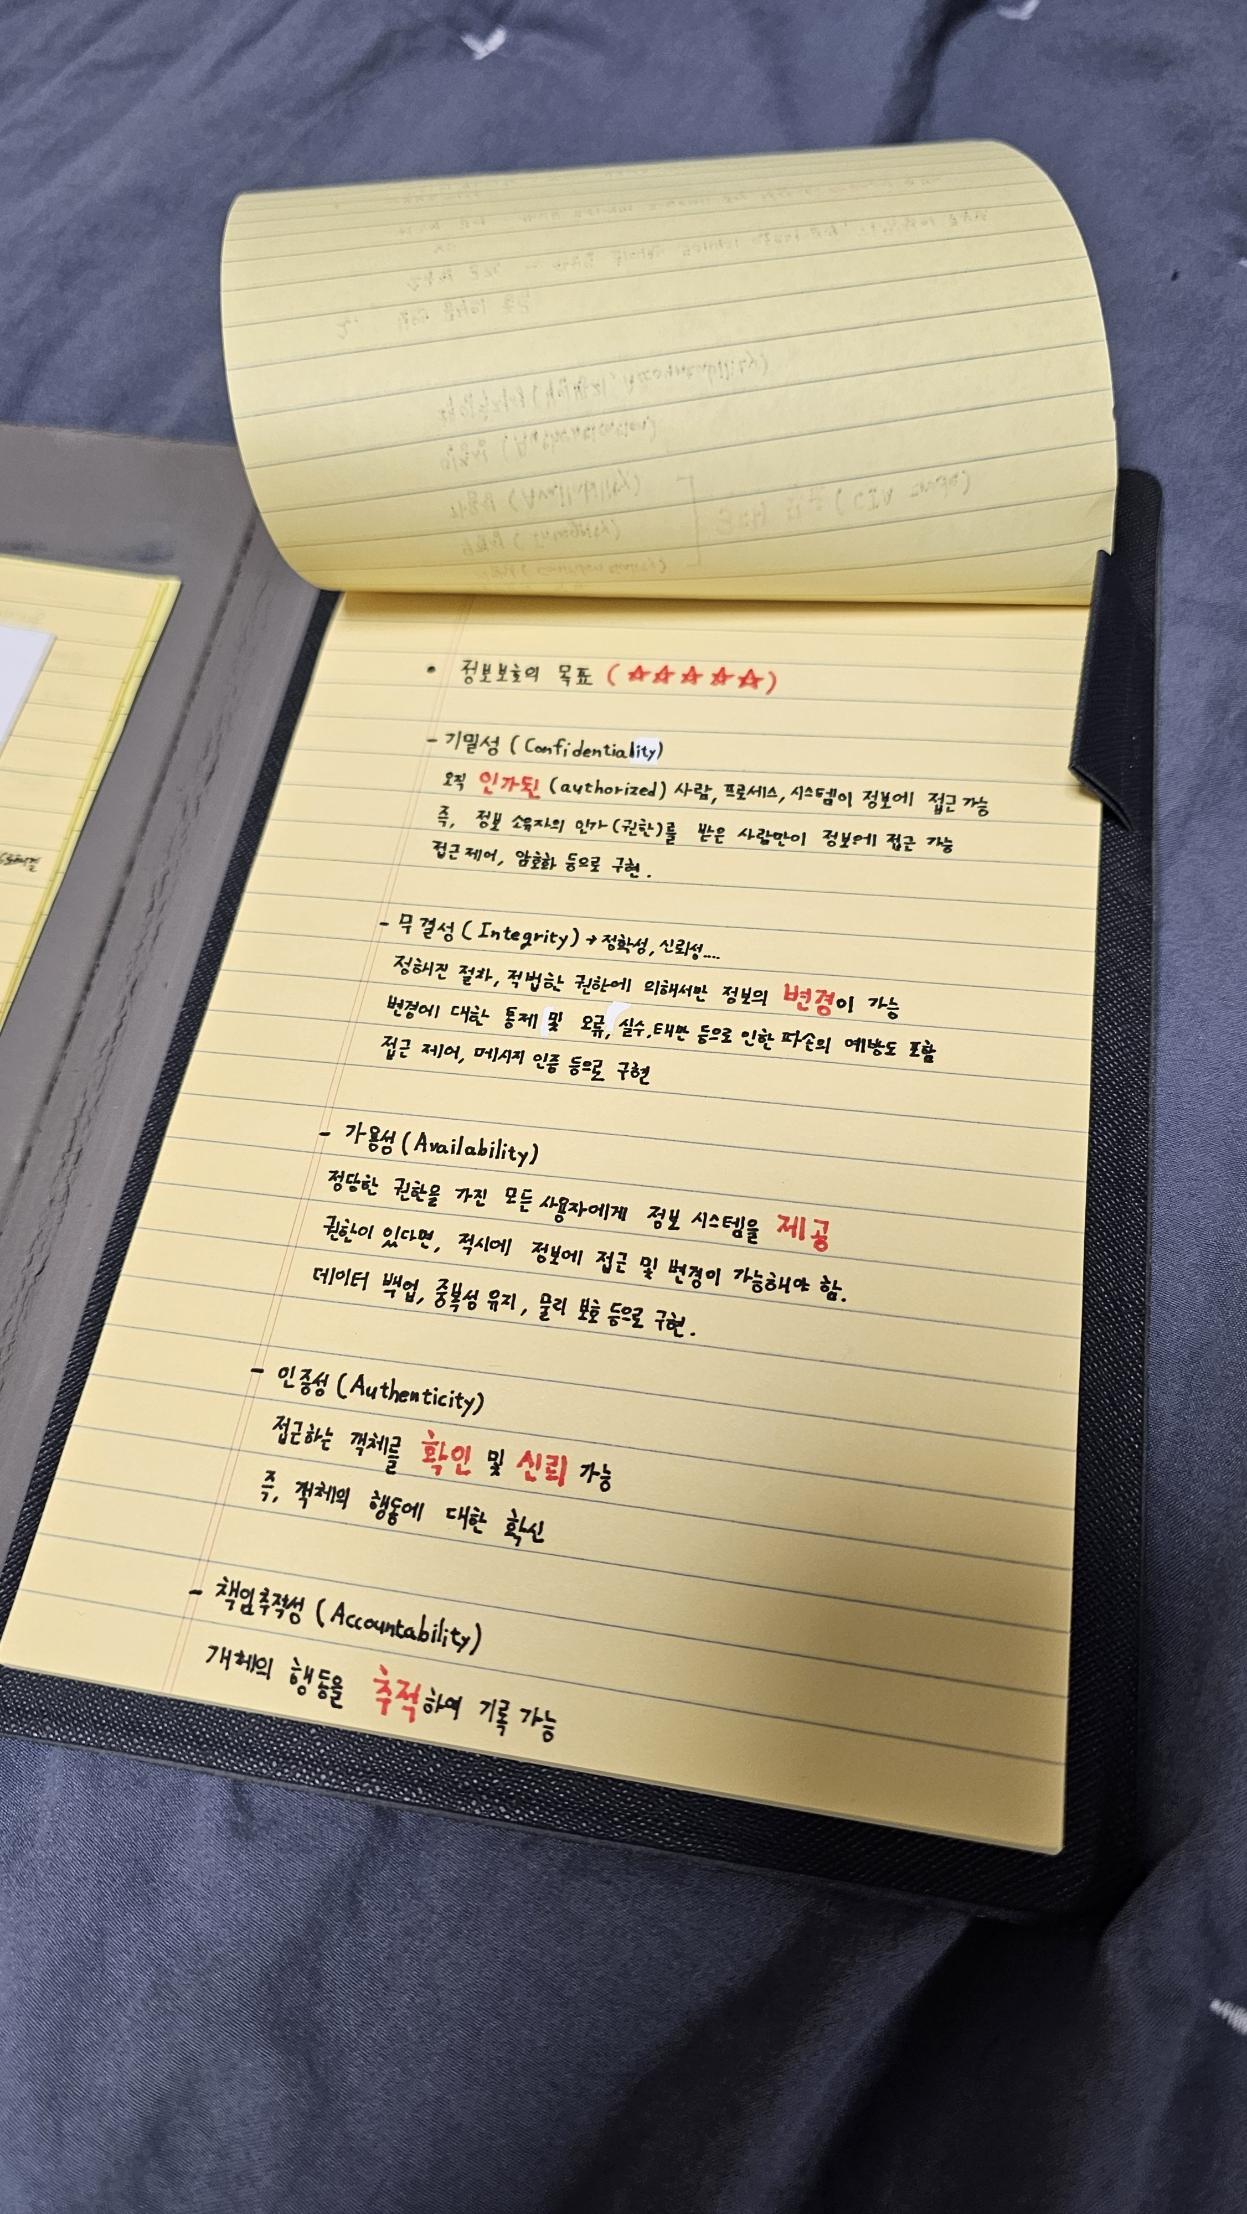 • 정보보호의 목표 (☆☆☆☆☆)
- 기밀성 (Confidentiality)
오직 인가된 (authorized) 사람, 프로세스, 시스템이 정보에 접근 가능
즉, 정보 소유자의 인가(권한)를 받은 사람만이 정보에 접근 가능
접근 제어, 암호화 등으로 구현.
- 무결성 (Integrity) → 정확성, 신뢰성....
정해진 절차, 적법한 권한에 의해서만 정보의 변경이 가능
변경에 대한 통제 및 오류, 실수, 태만 등으로 인한 파손의 예방도 포함
접근 제어, 메시지 인증 등으로 구현
- 가용성 (Availability)
정당한 권한을 가진 모든 사용자에게 정보 시스템을 제공
권한이 있다면, 적시에 정보에 접근 및 변경이 가능해야 함.
데이터 백업, 중복성 유지, 물리 보호 등으로 구현.
- 인증성 (Authenticity)
접근하는 객체를 확인 및 신뢰 가능
즉, 객체의 행동에 대한 확신
- 책임추적성 (Accountability)
개체의 행동을 추적하여 기록 가능